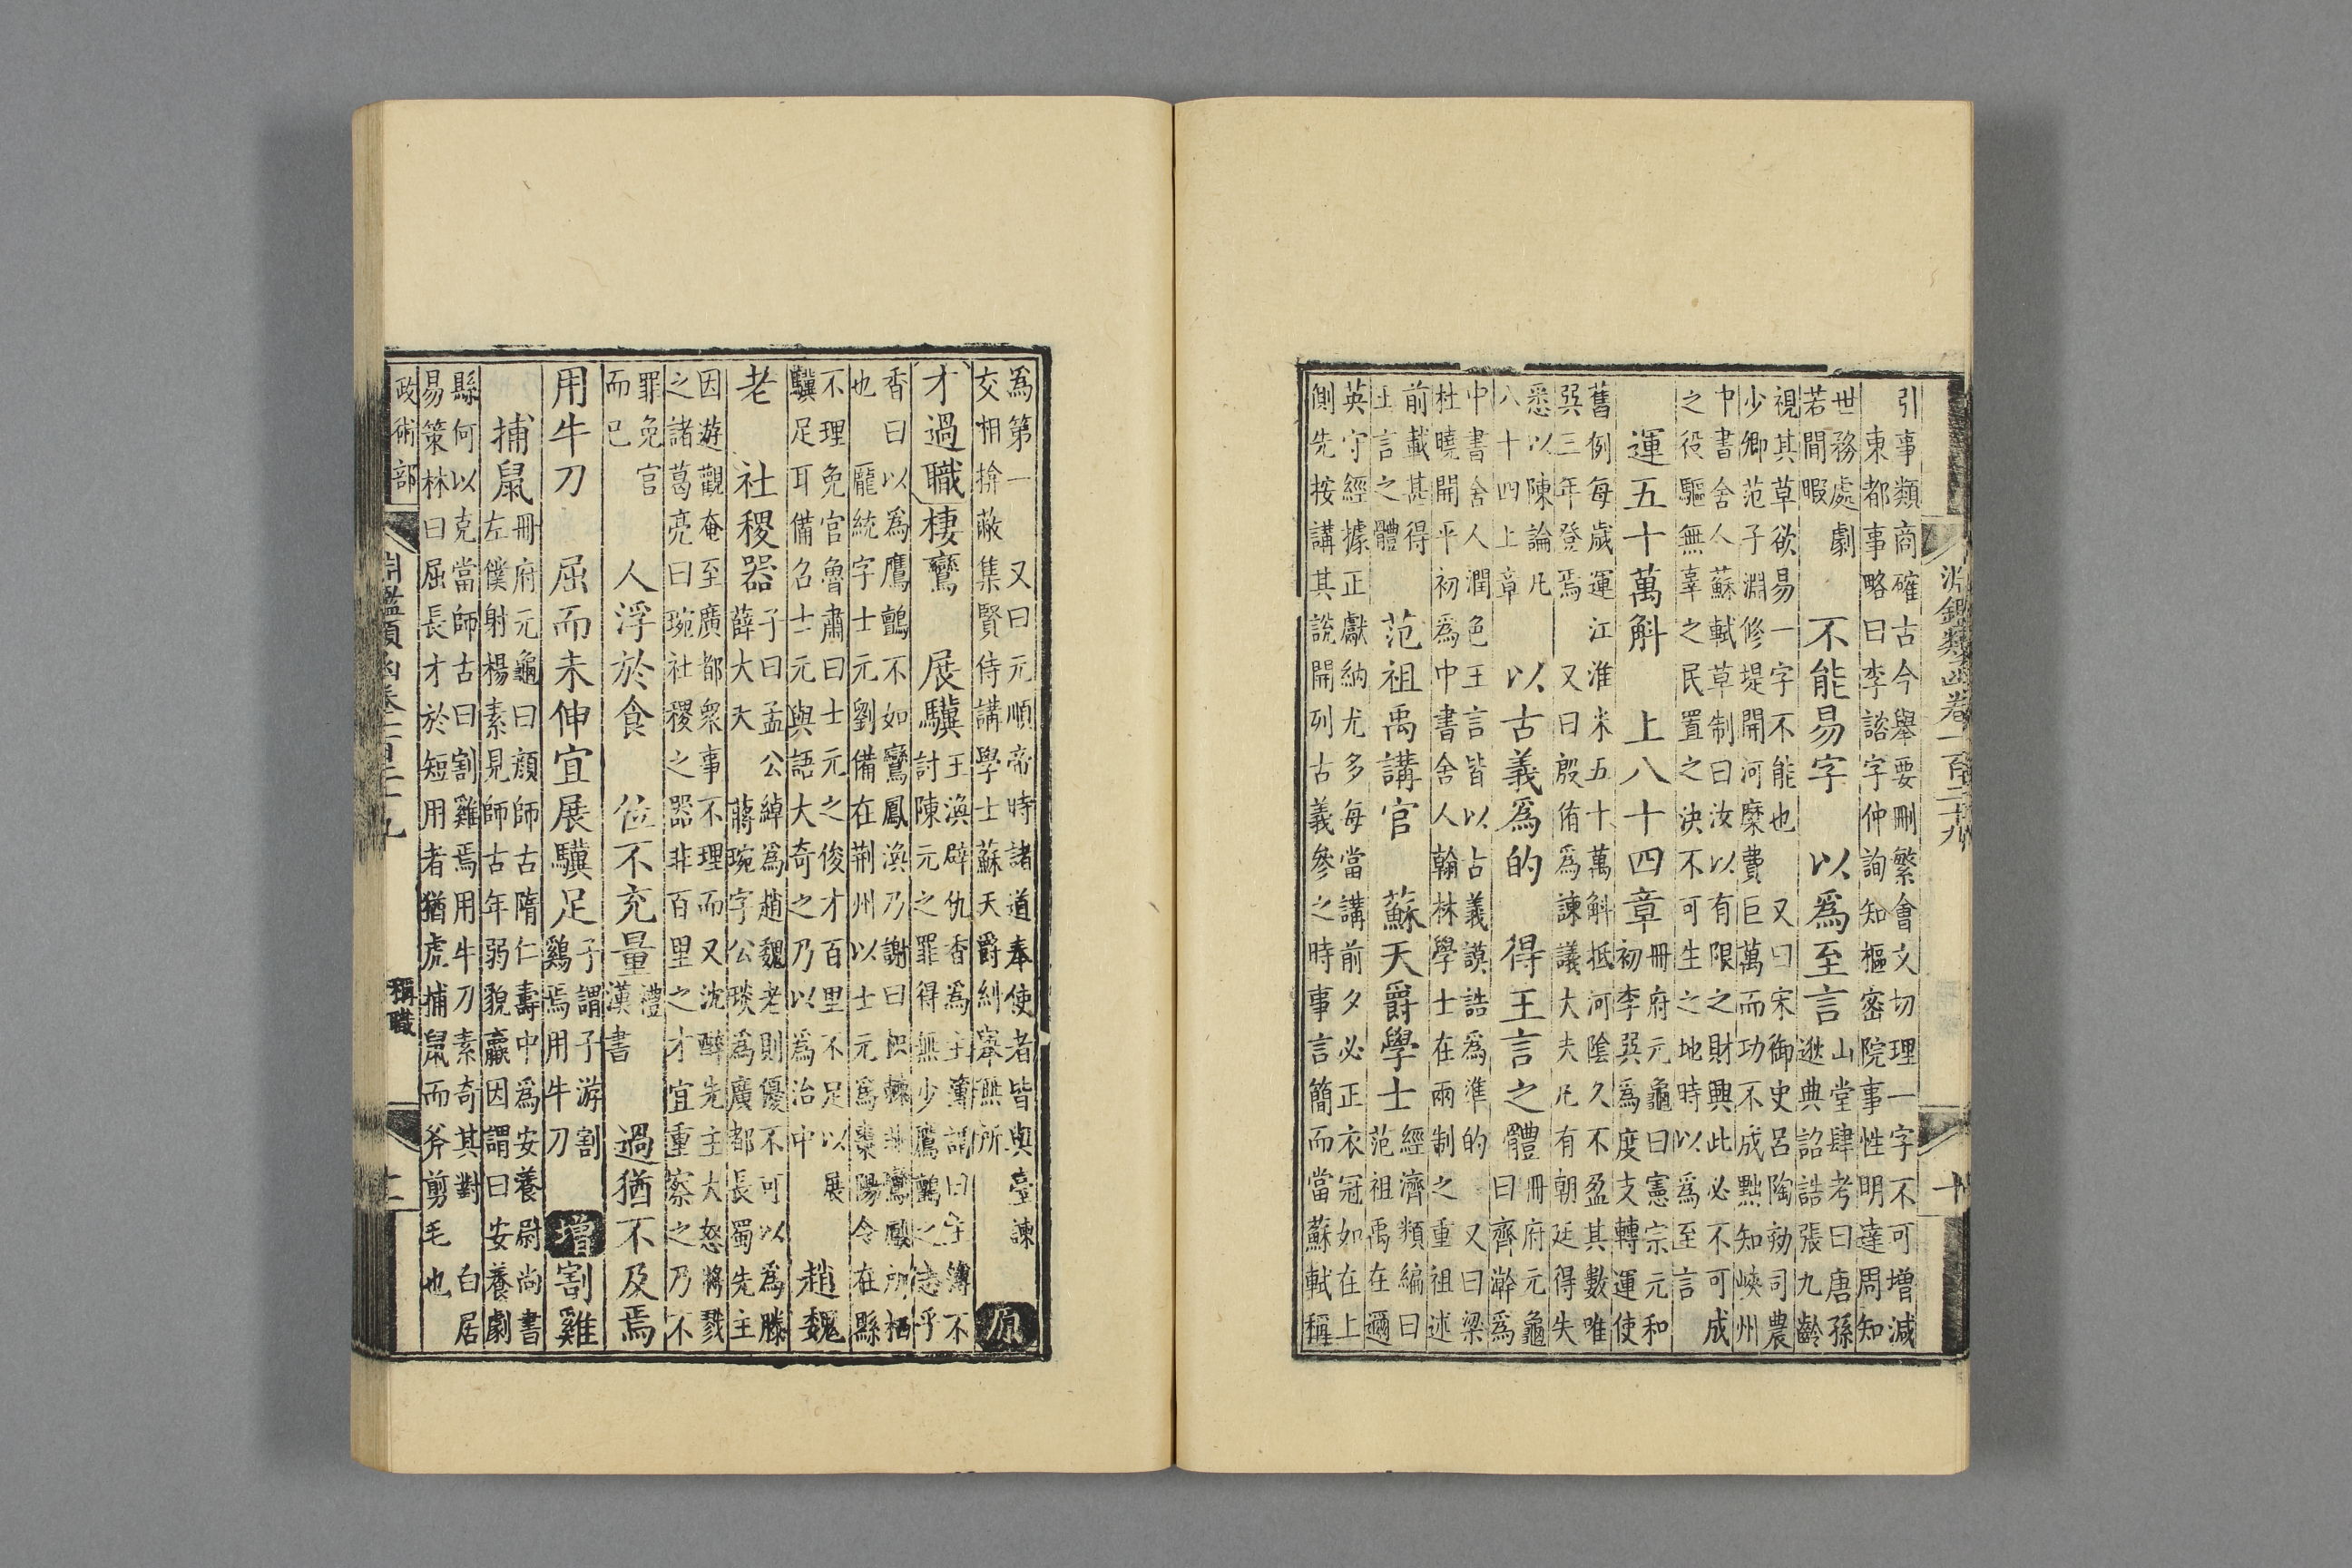 淵鑑類函卷一百二十九 十
引事類商確古今舉要刪繁會文切理一字不可增減
東都事略曰李諮字仲詢知樞密院事性明達周知
世務處劇若閒暇 不能易字 以爲至言 山堂肆考曰唐孫逖典詔誥張九齡
視其草欲易一字不能也 又曰宋御史呂陶劾司農
少卿范子淵修堤開河糜費巨萬而功不成黜知峽州
中書舍人蘇軾草制曰汝以有限之財興此必不可成
之役驅無辜之民置之決不可生之地時以爲至言
運五十萬斛 上八十四章 冊府元龜曰憲宗元和初李巽爲度支轉運使
舊例每歲運江淮米五十萬斛抵河陰久不盈其數唯
巽三年登焉 又曰殷侑爲諫議大夫凡有朝廷得失
悉以陳論凡八十四上章 以古義爲的 得王言之體 冊府元龜曰齊澣爲
中書舍人潤色王言皆以古義謨誥爲準的 又曰梁
杜曉開平初爲中書舍人翰林學士在兩制之重祖述
前載甚得王言之體 范祖禹講官 蘇天爵學士 經濟類編曰范祖禹在邇
英守經據正獻納尤多每當講前夕必正衣冠如在上
側先按講其說開列古義參之時事言簡而當蘇軾稱
爲第一 又曰元順帝時諸道奉使者皆與臺諫
交相掩蔽集賢侍講學士蘇天爵糾舉無所 原
才過職棲鸞 展驥 王渙辟仇香爲主簿謂曰主簿不討陳元之罪得無少鷹鸇之志乎
香曰以爲鷹鸇不如鸞鳳渙乃謝曰枳棘非鸞鳳所栖
也 龐統字士元劉備在荆州以士元爲棗陽令在縣
不理免官魯肅曰士元之俊才百里不足以展驥足耳備召士元與語大奇之乃以爲治中 趙魏
老 社稷器 子曰孟公綽爲趙魏老則優不可以爲滕薛大夫 蔣琬字公琰爲廣都長蜀先主
因遊觀奄至廣都衆事不理而又沈醉先主大怒將戮
之諸葛亮曰琬社稷之器非百里之才宜重察之乃不
罪免官而已 人浮於食 位不充量 禮漢書 過猶不及焉
用牛刀 屈而未伸宜展驥足 子謂子游割鷄焉用牛刀 增 割雞
捕鼠 冊府元龜曰顔師古隋仁壽中爲安養尉尚書左僕射楊素見師古年弱貌羸因謂曰安養劇
縣何以克當師古曰割雞焉用牛刀素奇其對 白居
易策林曰屈長才於短用者猶虎捕鼠而斧剪毛也
政術部 淵鑑類函卷一百二十九 稱職